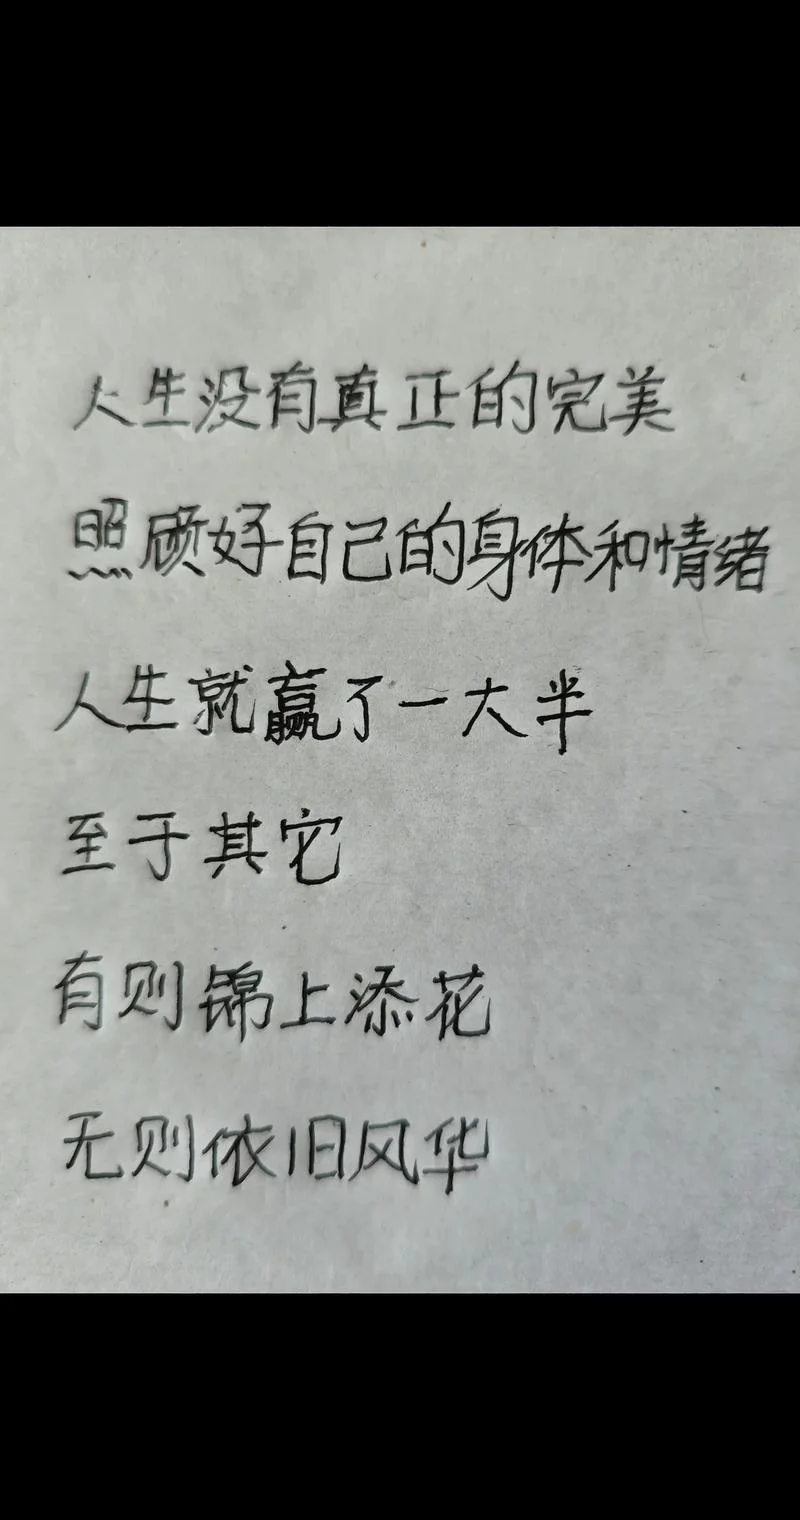 人生没有真正的完美
照顾好自己的身体和情绪
人生就赢了一大半
至于其它
有则锦上添花
无则依旧风华